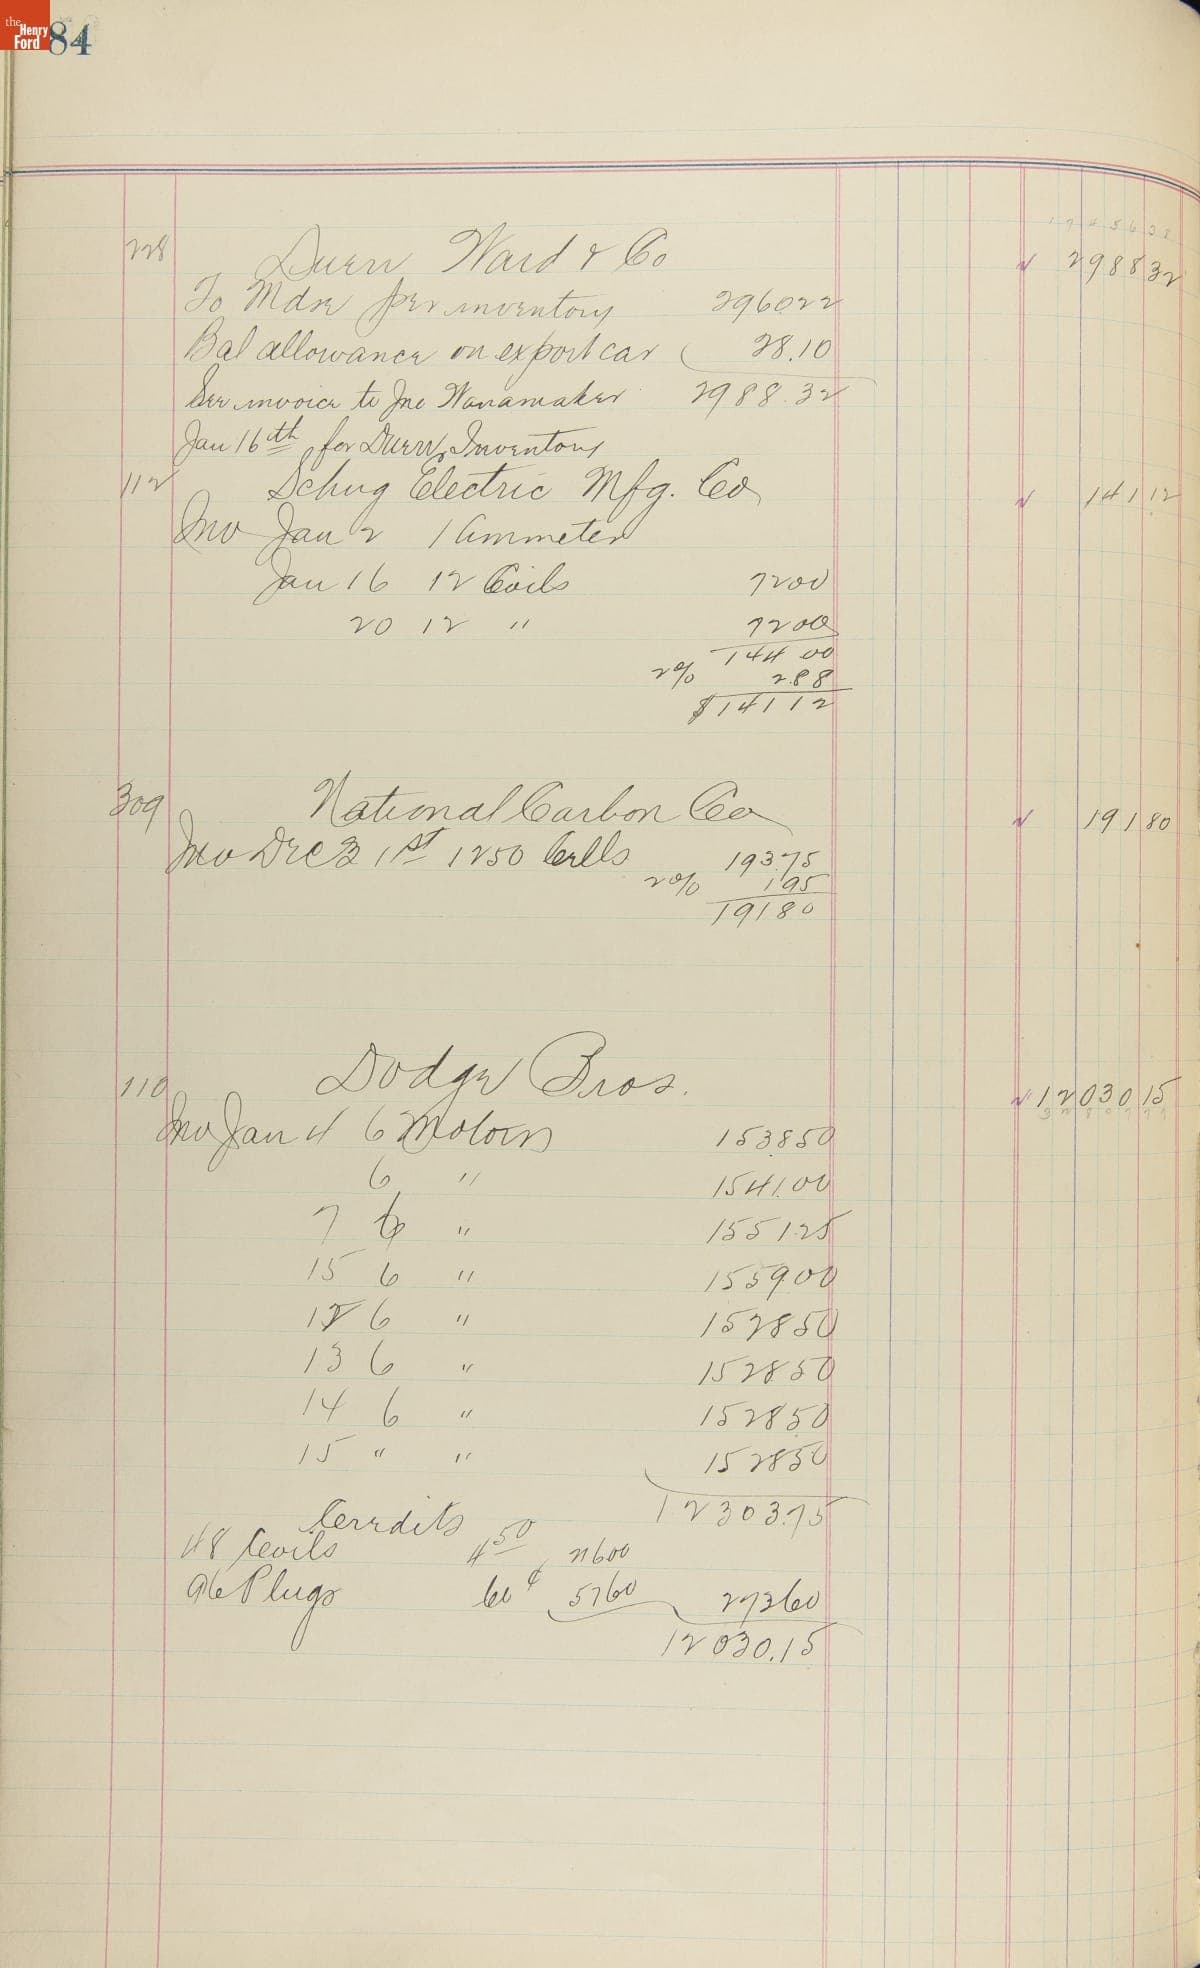 the Henry Ford
84
1 9 4 5 6 3 8
228 Duerr Ward & Co 2988 32
To Mdse per inventory 2960 22
Bal allowance on export car 28.10
See invoice to Jno Wanamaker 2988.32
Jan 16th for Duerr Inventory
112 Schug Electric Mfg. Co 141 12
Inv Jan 2 1 Ammeter
Jan 16 12 Coils 72 00
20 12 " 72 00
144 00
2% 2.88
$141 12
309 National Carbon Co 191 80
Inv Dec 31st 1250 Cells 193.75
2% 1 95
191 80
110 Dodge Bros. 12030 15
Inv Jan 4 6 Motors 1538.50
6 " 1541.00
7 6 " 1551.25
15 6 " 1559 00
12 6 " 1528 50
13 6 " 1528.50
14 6 " 1528.50
15 " " 1528 50
12303.75
Credits
48 Coils 4 50 21600
96 Plugs 60¢ 5760 273 60
12030.15